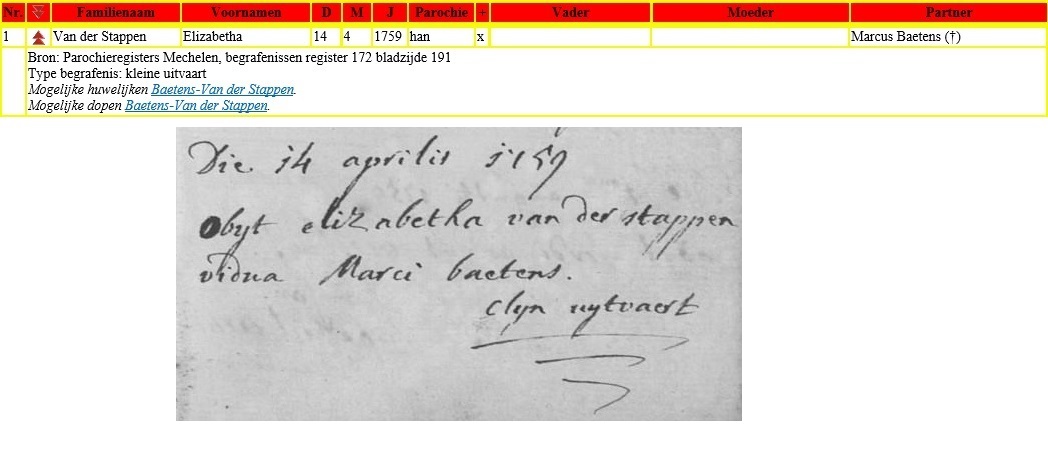 Nr. Familienaam Voornamen D M J Parochie + Vader Moeder Partner
1 Van der Stappen Elizabetha 14 4 1759 han x Marcus Baetens (†)
Bron: Parochieregisters Mechelen, begrafenissen register 172 bladzijde 191
Type begrafenis: kleine uitvaart
Mogelijke huwelijken Baetens-Van der Stappen.
Mogelijke dopen Baetens-Van der Stappen.
Die 14 aprilis 1759
obyt elizabetha van der stappen
vidua Marci baetens.
clyn uytvaert